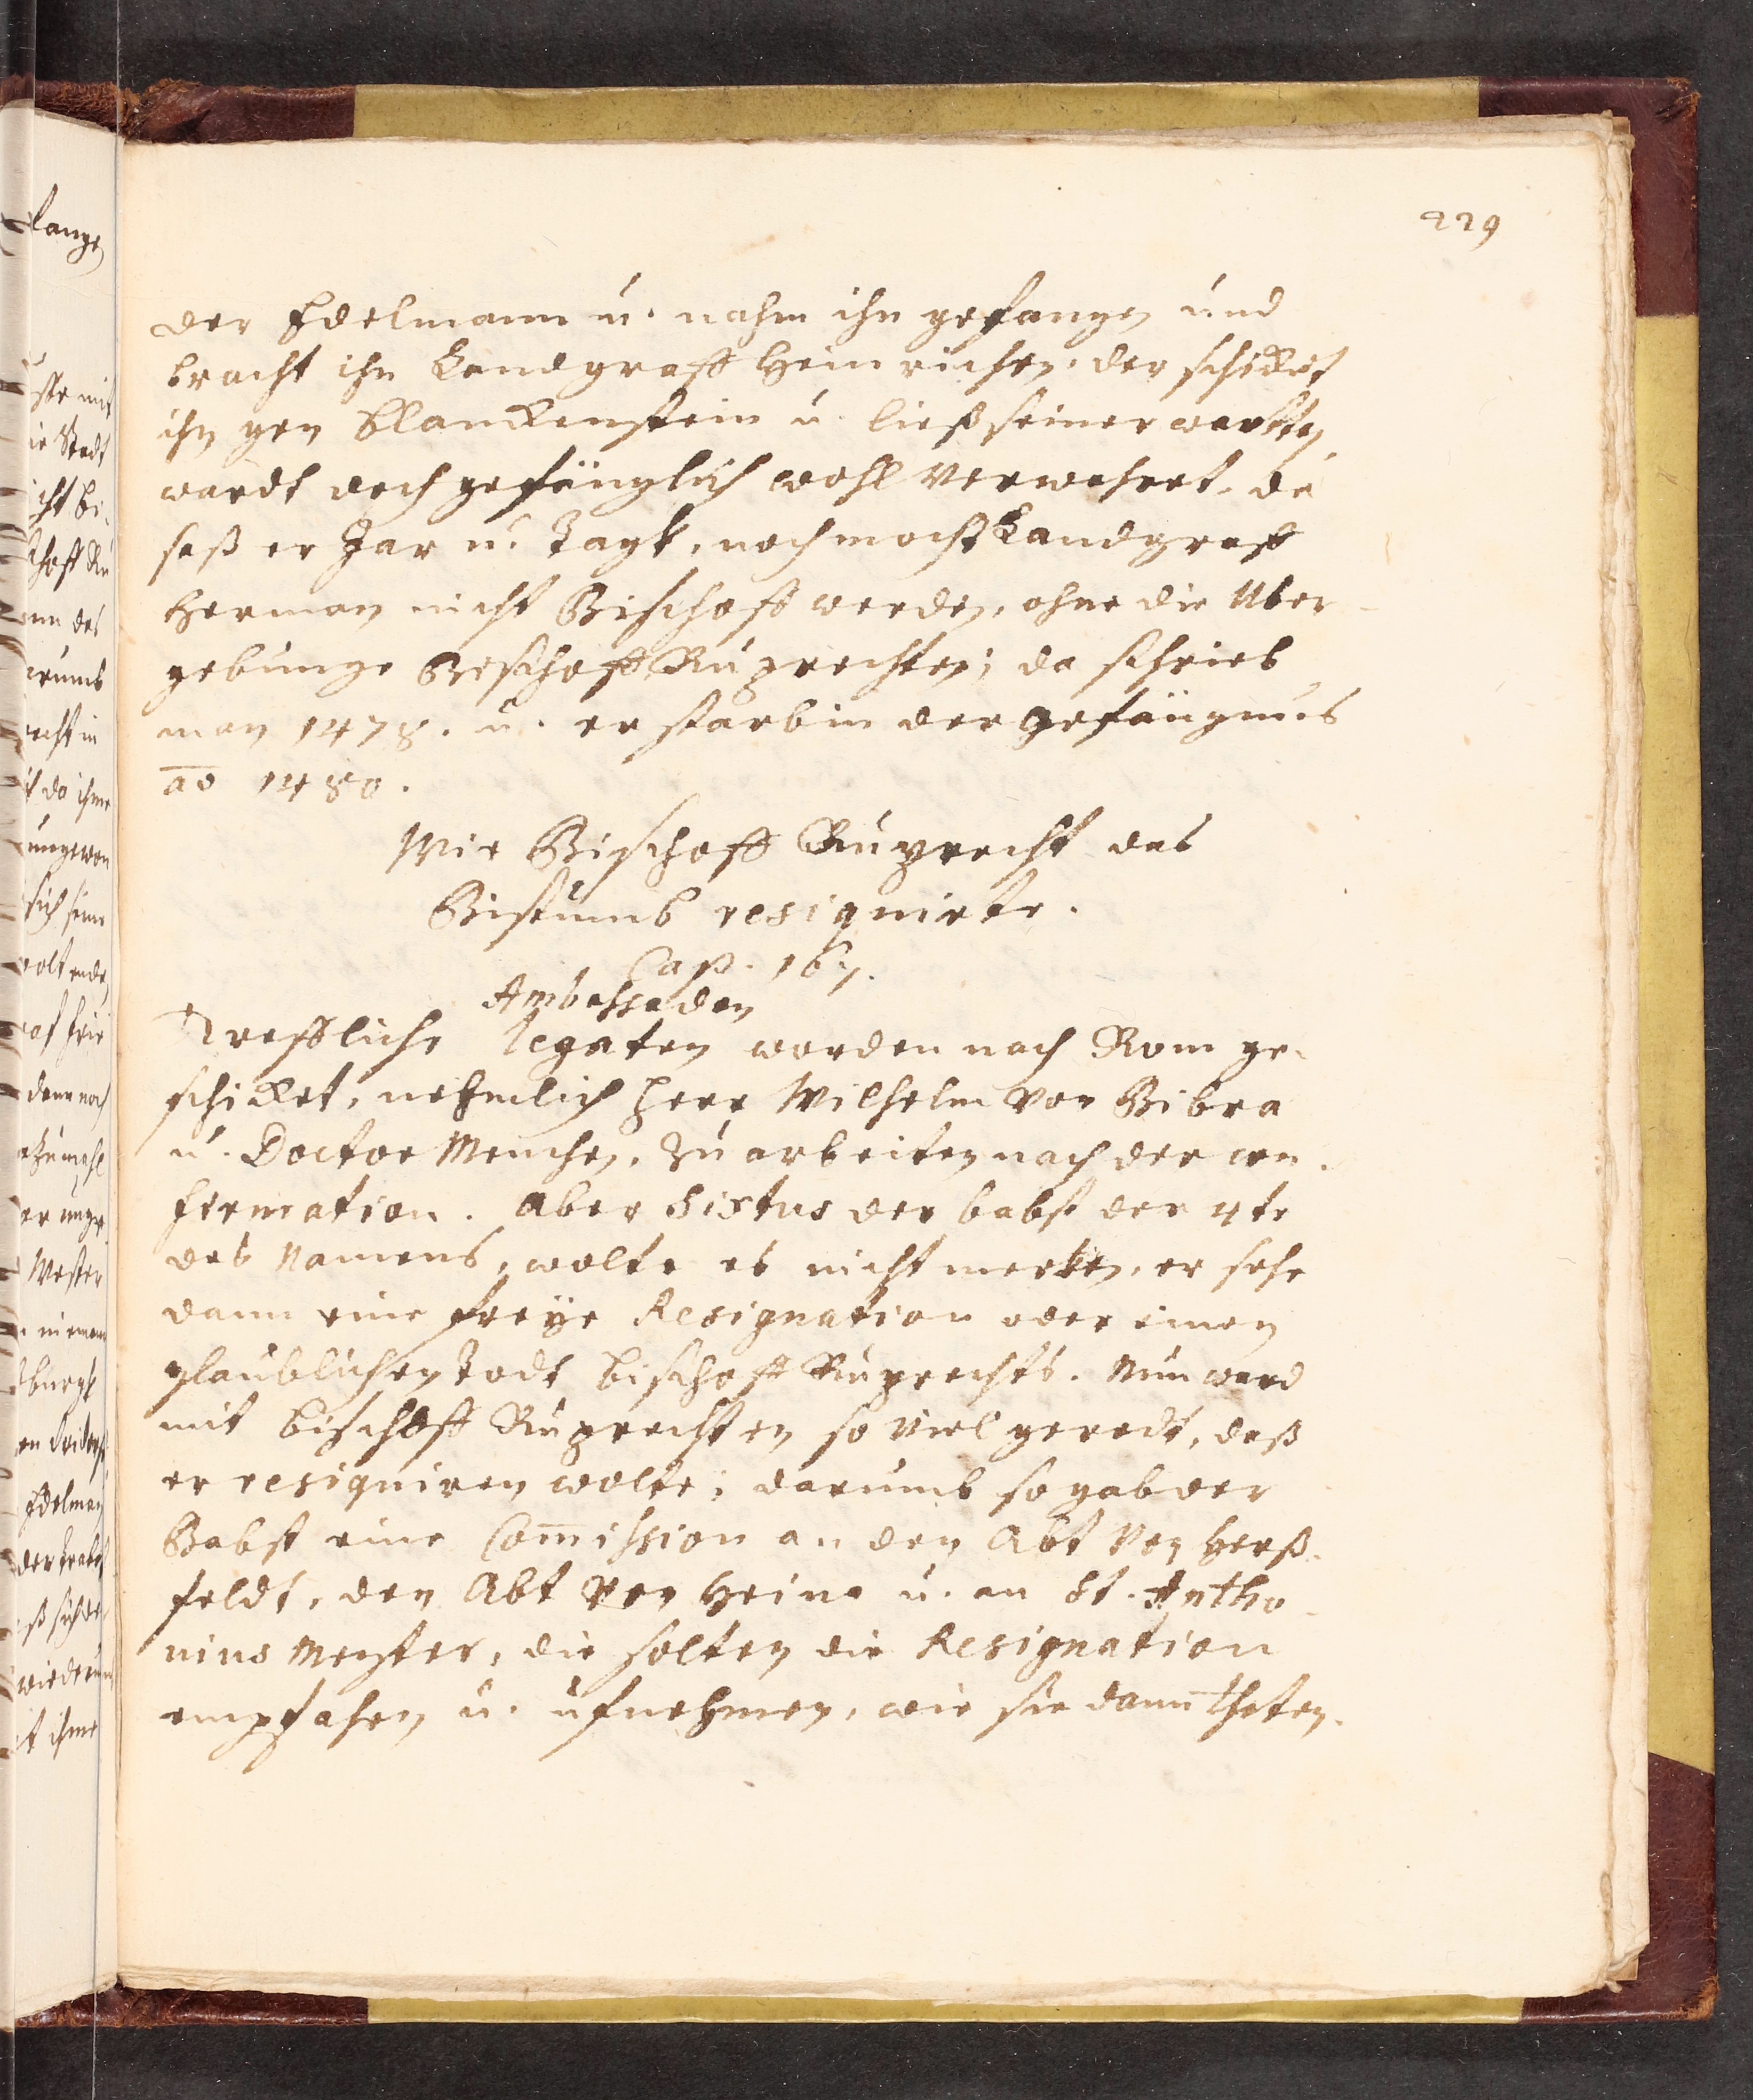 229
der Edelmann u. nahm ihn gefangen und
bracht ihn Landgraff Heinrichen, der schicket
ihn gen Blanckenstein u. ließ seiner wartten,
wardt doch gefänglich wohl verwahret. da
saß er Jar u. Tagk, noch mocht Landgraff
Herman nicht Bischoff werden, ohne die Uber-
gebunge Bischoff Ruprechten; da schrieb
man 1478. u. er starb in der gefängnus
ao 1480.
Wie Bischoff Ruprecht das
Bistumb resignirte.
Cap. 167.
Ambassaden
Treffliche legaten worden nach Rom ge-
schicket, nehmlich Herr Wilhelm von Bibra
u. Doctor Menchen, zu arbeiten nach der con-
firmation. Aber Sixtus der babst der 4te
des Namens, wolte es nicht merken, er sehe
dann eine freye Resignation oder einen
glaublichen Todt bischoff Ruprechts. Nun ward
mit bischoff Ruprechten so viel geredt, daß
er resigniren wolte; darumb so gab der
Babst eine Com̄ission an den Abt von Herß-
feldt, den Abt von Heina u. an St. Antho-
nius Meyster, die solten die Resignation
empfahen u. ufnehmen, wie sie dann theten.